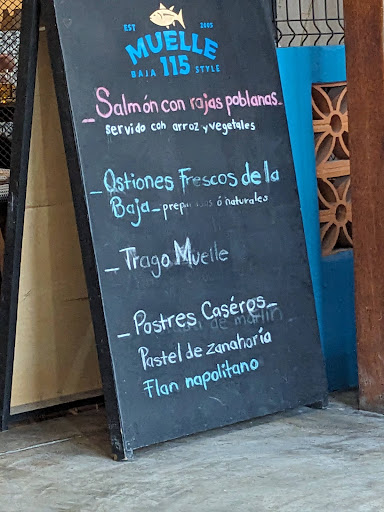 EST 2005
MUELLE
BAJA 115 STYLE
- Salmón con rajas poblanas -
servido con arroz y vegetales
- Ostiones Frescos de la
Baja - preparados ó naturales
- Trago Muelle
- Postres Caséros -
de marlin
Pastel de zanahoría
Flan napolitano